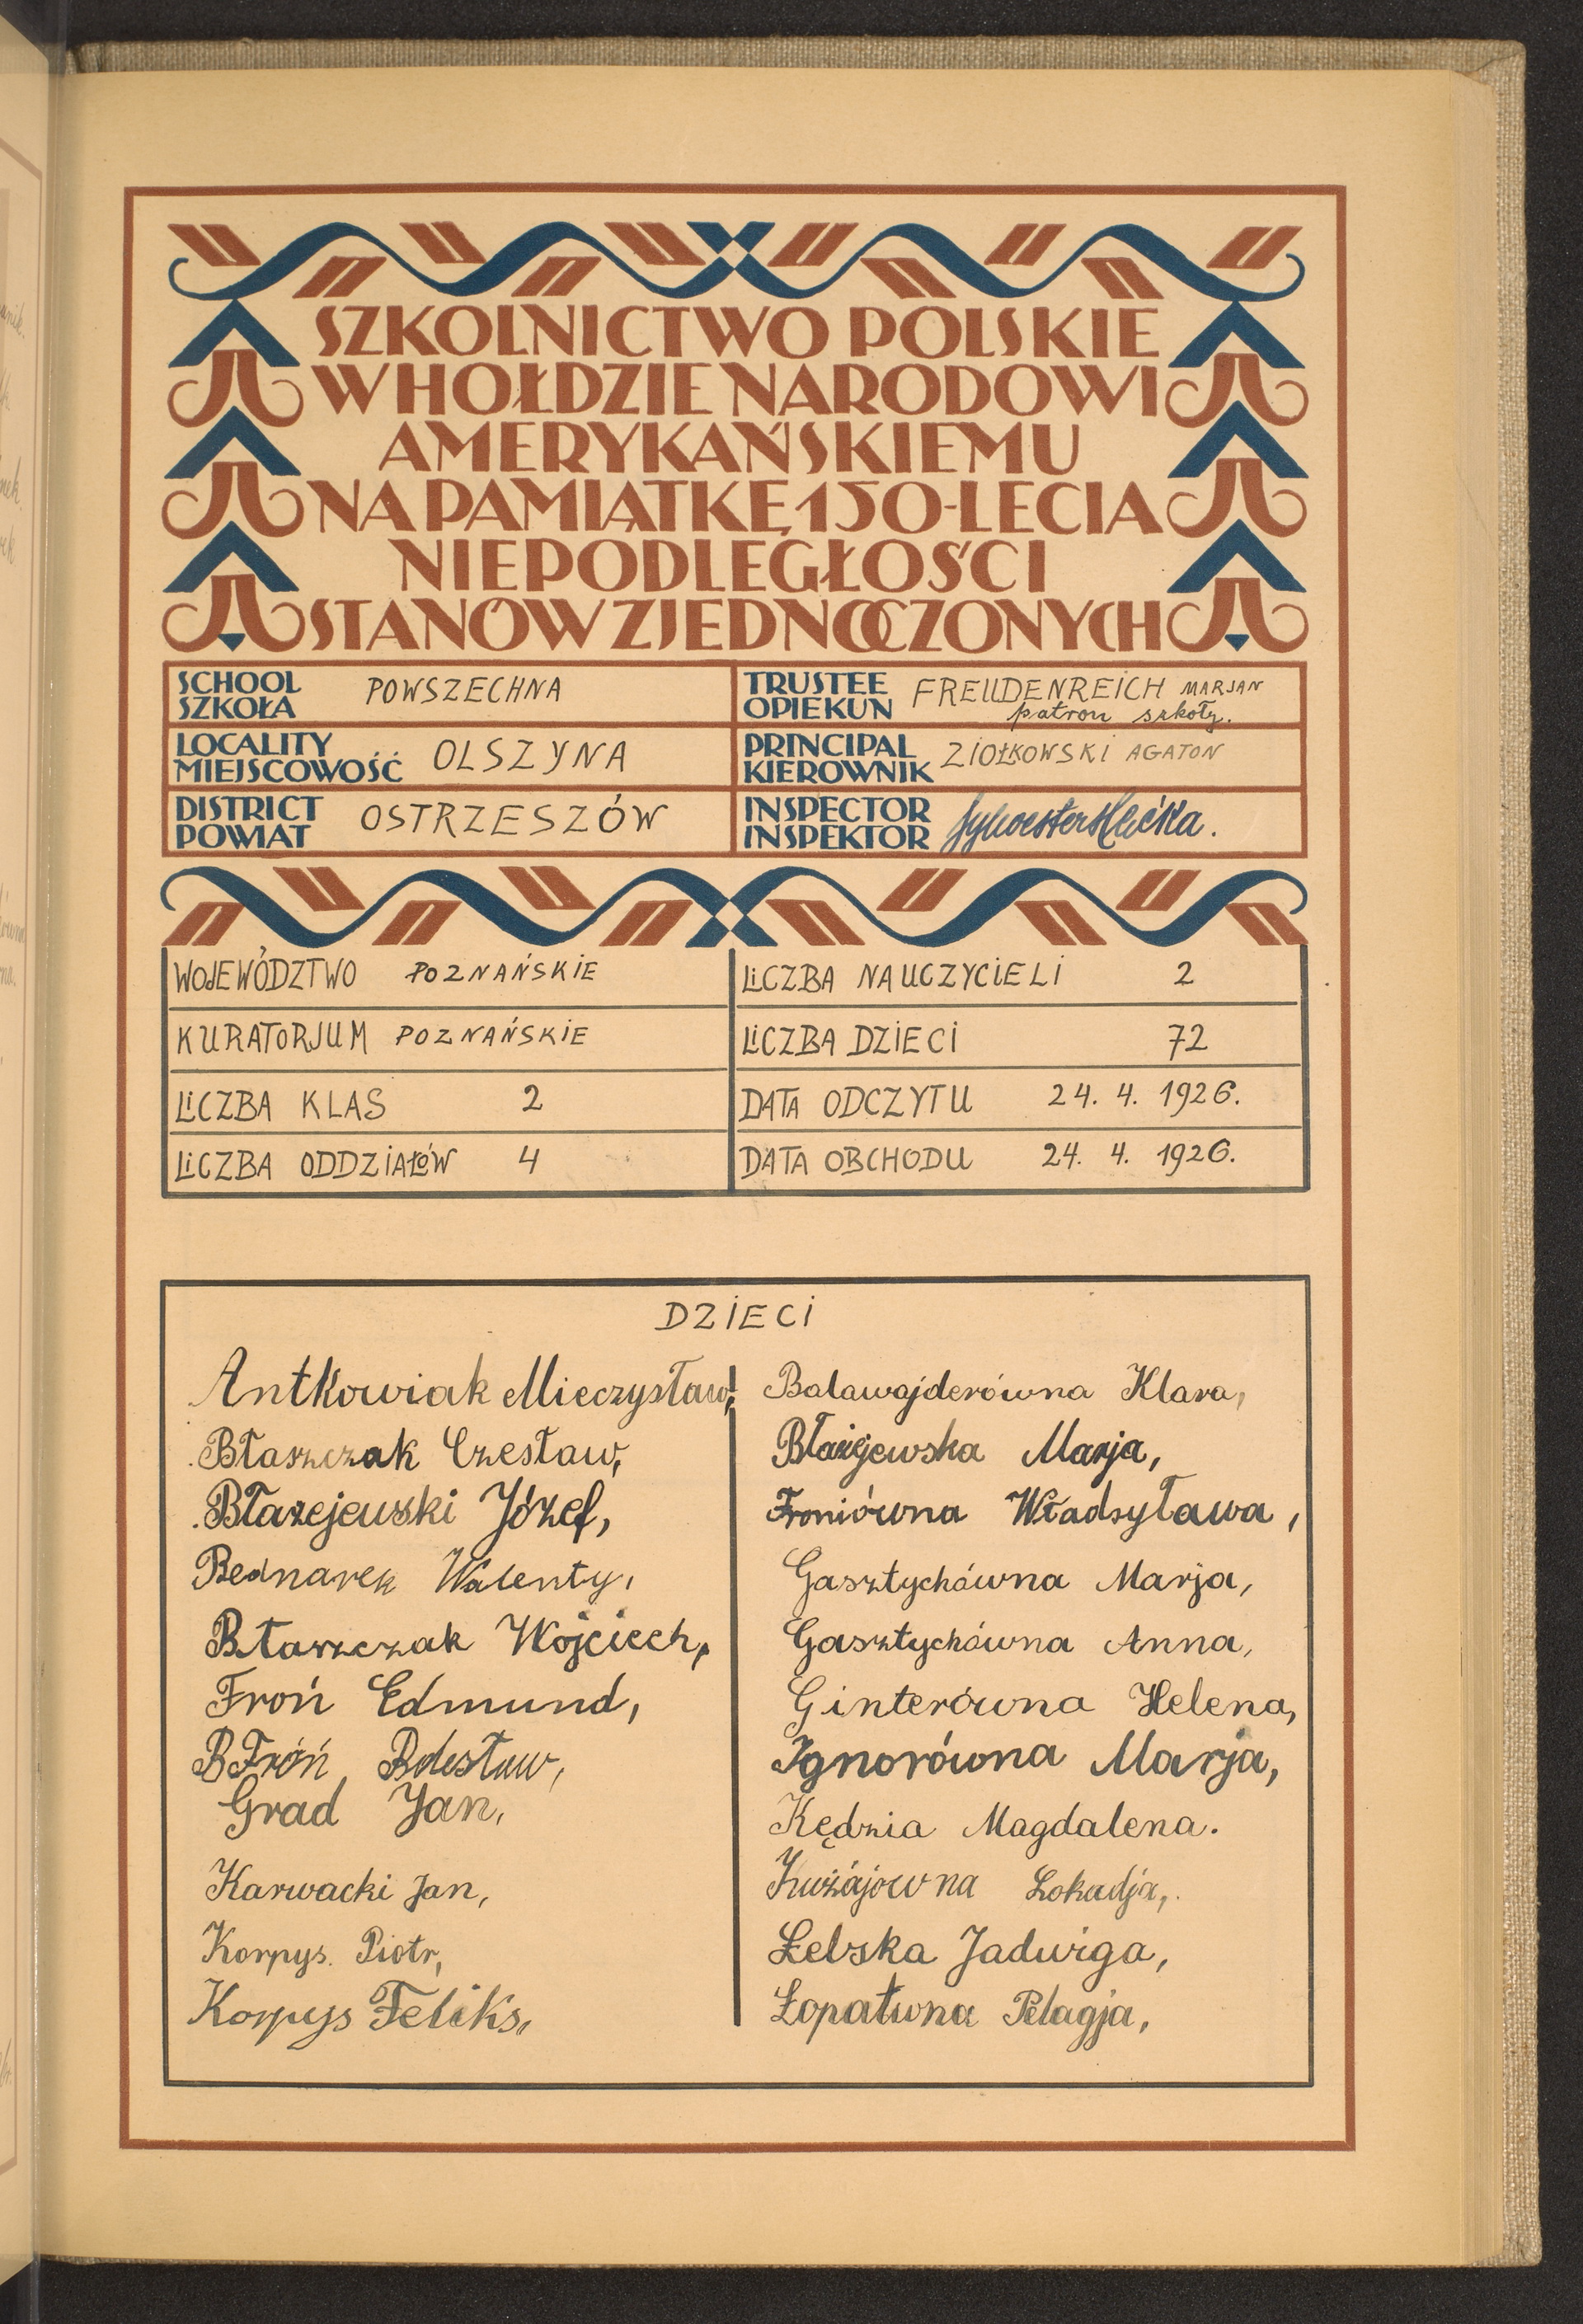 SZKOLNICTWO POLSKIE
W HOŁDZIE NARODOWI
AMERYKAŃSKIEMU
NA PAMIĄTKĘ 150-LECIA
NIEPODLEGŁOŚCI
STANÓW ZJEDNOCZONYCH
SCHOOL
SZKOŁA POWSZECHNA
TRUSTEE
OPIEKUN FREUDENREICH MARJAN
patron szkoły.
LOCALITY
MIEJSCOWOŚĆ OLSZYNA
PRINCIPAL
KIEROWNIK ZIOŁKOWSKI AGATON
DISTRICT
POWIAT OSTRZESZÓW
INSPECTOR
INSPEKTOR Sylwester
WOJEWÓDZTWO POZNAŃSKIE
LICZBA NAUCZYCIELI 2
KURATORJUM POZNAŃSKIE
LICZBA DZIECI 72
LICZBA KLAS 2
DATA ODCZYTU 24. 4. 1926.
LICZBA ODDZIAŁÓW 4
DATA OBCHODU 24. 4. 1926.
DZIECI
Antkowiak Mieczysław,
Błaszczak Czesław,
Błazejewski Józef,
Bednarek Walenty,
Błaszczak Wojciech,
Froń Edmund,
BFróń Bolesław,
Grad Jan,
Karwacki Jan,
Korpys. Piotr,
Korpys Feliks,
Balawajderówna Klara,
Błażejewska Marja,
Froniówna Władsyława,
Gasztychówna Marja,
Gasztychówna Anna,
Ginterówna Helena,
Ignorówna Marja,
Kędzia Magdalena.
Kużájowna Lokadja,
Łebska Jadwiga,
Łopatwna Pelagja,